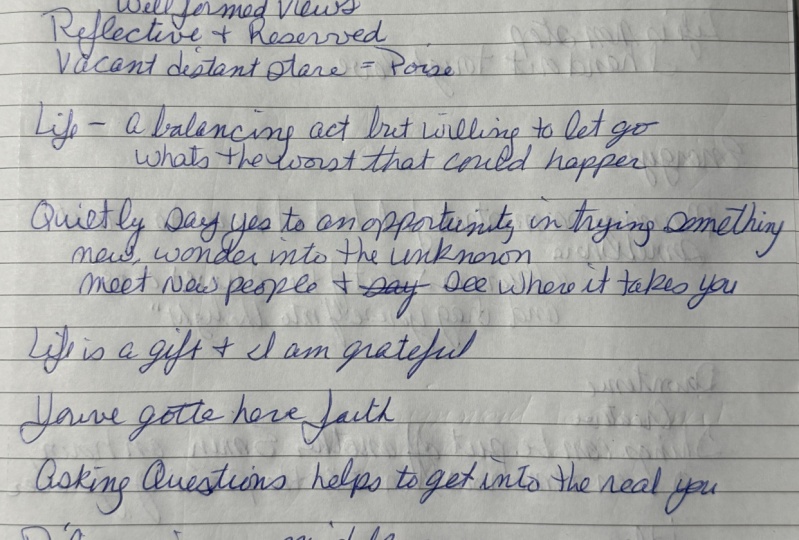 Well formed Views
Reflective + Reserved
Vacant distant stare = Poise
Life - a balancing act but willing to let go
whats the worst that could happen
Quietly say yes to an opportunity in trying something
new, wonder into the unknown
meet new people + say see where it takes you
Life is a gift + I am grateful
Youve gotta have faith
Asking Questions helps to get into the real you